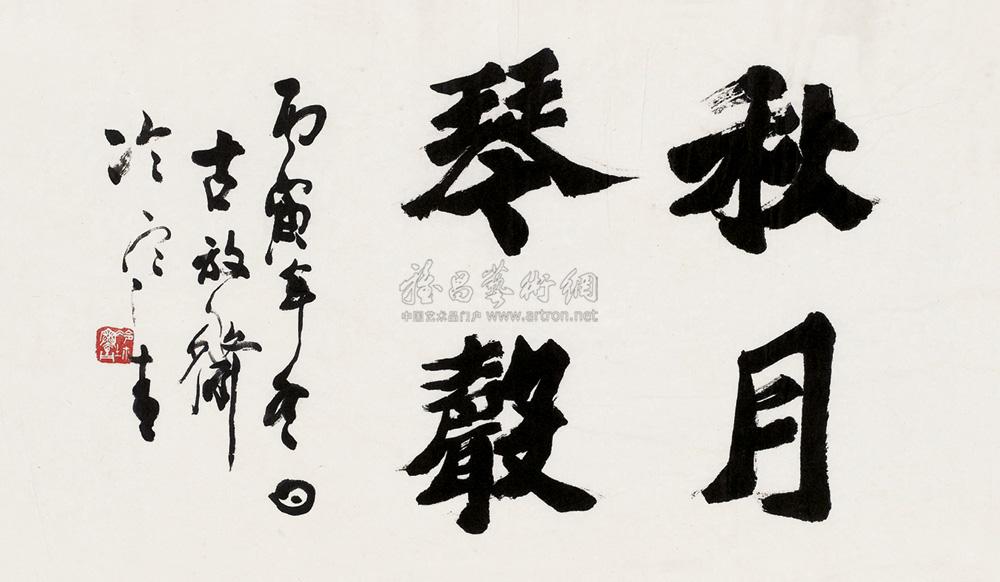 秋月
琴聲
丙寅年冬日
古
冷 書
雅昌藝術網
中国艺术品门户 www.artron.net